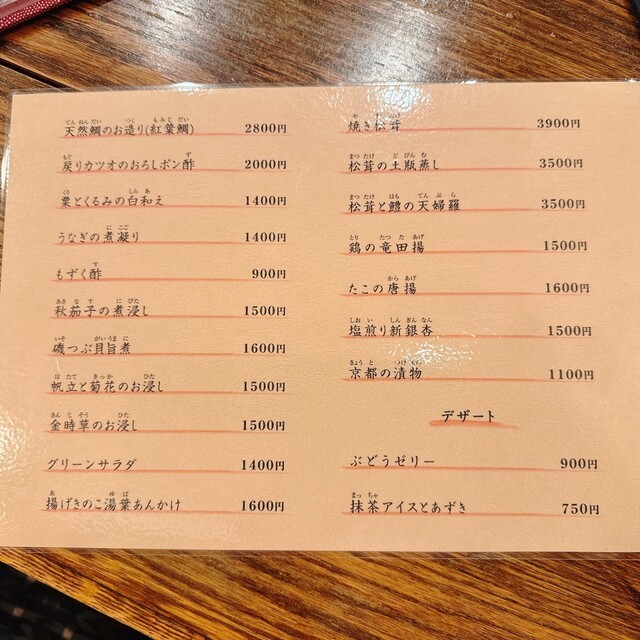 天然鯛のお造り(紅葉鯛) 2800円
戻りカツオのおろしポン酢 2000円
栗とくるみの白和え 1400円
うなぎの煮凝り 1400円
もずく酢 900円
秋茄子の煮浸し 1500円
磯つぶ貝旨煮 1600円
帆立と菊花のお浸し 1500円
金時草のお浸し 1500円
グリーンサラダ 1400円
揚げきのこ湯葉あんかけ 1600円
焼き松茸 3900円
松茸の土瓶蒸し 3500円
松茸と鱧の天婦羅 3500円
鶏の竜田揚 1500円
たこの唐揚 1600円
塩煎り新銀杏 1500円
京都の漬物 1100円
デザート
ぶどうゼリー 900円
抹茶アイスとあずき 750円